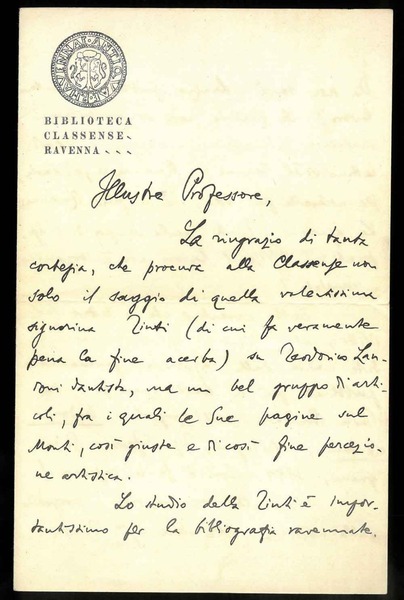 BIBLIOTECA
CLASSENSE
RAVENNA
Illustre Professore,
La ringrazio di tanta
cortesia, che procura alla Classense non
solo il saggio di quella valentissima
signorina Zinti (di cui fa veramente
pena la fine acerba) su Teodorico Lan-
doni dantista, ma un bel gruppo di arti-
coli, fra i quali le Sue pagine sul
Monti, così giuste e di così fine percezio-
ne artistica.
Lo studio della Zinti è impor-
tantissimo per la bibliografia ravennate.